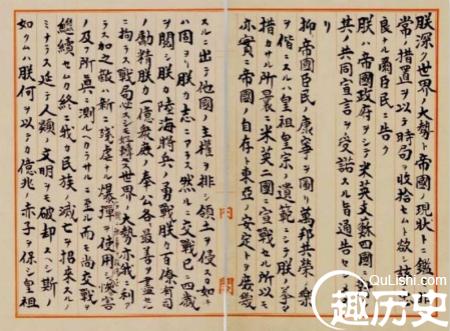 朕深ク世界ノ大勢ト帝國ノ現狀トニ鑑ミ非
常ノ措置ヲ以テ時局ヲ收拾セムト欲シ茲ニ
良ナル爾臣民ニ告ク
朕ハ帝國政府ヲシテ米英支蘇四國ニ
共ノ共同宣言ヲ受諾スル旨通告セ
リ
抑〻帝國臣民ノ康寧ヲ圖リ萬邦共榮ノ樂
ヲ偕ニスルハ皇祖皇宗ノ遺範ニシテ朕ノ拳々
措カサル所曩ニ米英二國ニ宣戰セル所以モ
亦實ニ帝國ノ自存ト東亞ノ安定トヲ庶幾
スルニ出テ他國ノ主權ヲ排シ領土ヲ侵スカ如キ
ハ固ヨリ朕カ志ニアラス然ルニ交戰已ニ四歲
ヲ閱シ朕カ陸海將兵ノ勇戰朕カ百僚有司
ノ勵精朕カ一億衆庶ノ奉公各〻最善ヲ盡セル
ニ拘ラス戰局必スシモ好轉セス世界ノ大勢亦我ニ利
アラス加之敵ハ新ニ殘虐ナル爆彈ヲ使用シテ慘害
ノ及フ所眞ニ測ルヘカラサルニ至ル而モ尚交戰ヲ
繼續セムカ終ニ我カ民族ノ滅亡ヲ招來スルノ
ミナラス延テ人類ノ文明ヲモ破却スヘシ斯ノ
如クムハ朕何ヲ以テカ億兆ノ赤子ヲ保シ皇祖
内閣
QuLiShi.com
趣历史